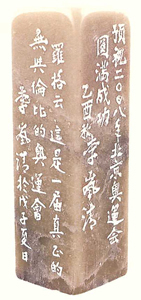 預祝二〇〇八年北京奧運会
圓滿成功
乙酉秋李嵐清
羅格云這是一届真正的
無與倫比的奧運會
李嵐清於戊子夏日